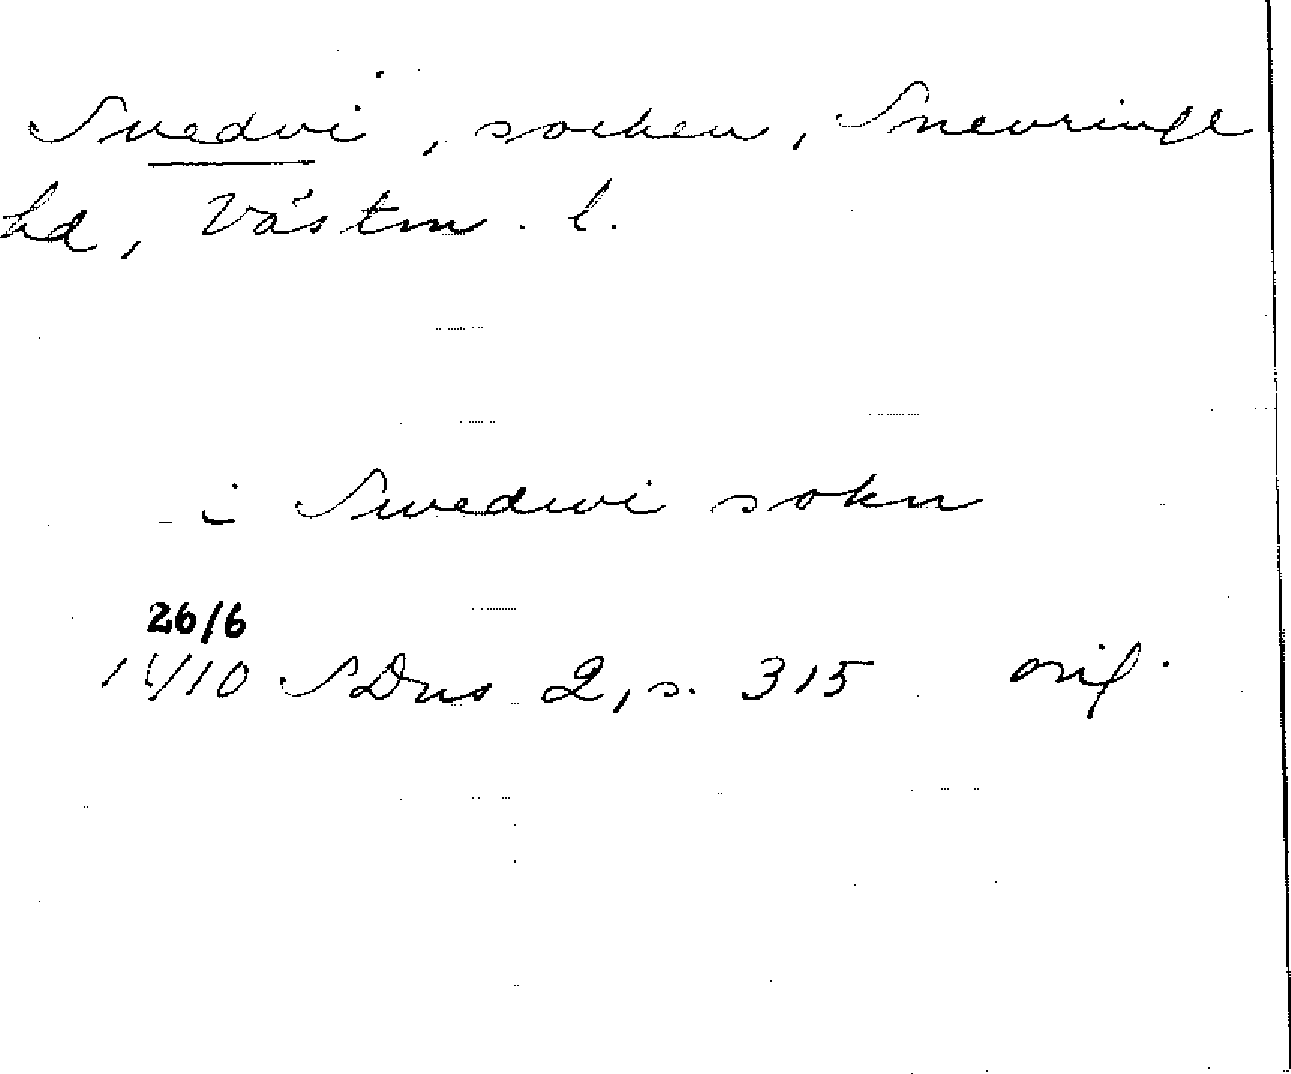 Svedvi, socken, Snevringe
hd, Västm. l.
i Swedwi sokn
26/6
1410 SDns 2, s. 315 orig.